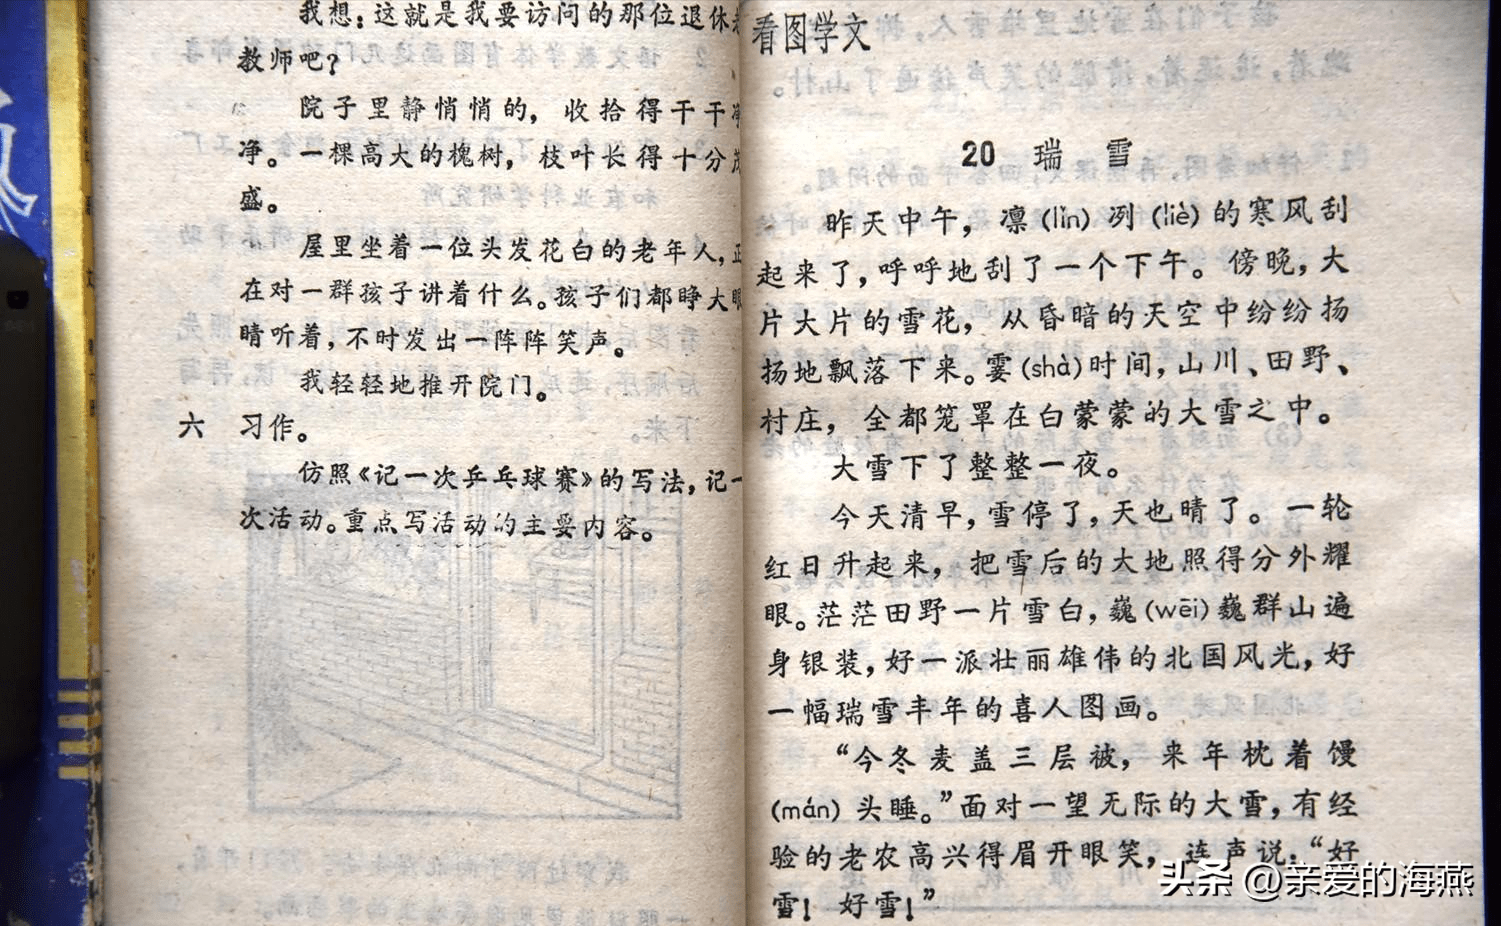 我想：这就是我要访问的那位退休老
教师吧？
院子里静悄悄的，收拾得干干净
净。一棵高大的槐树，枝叶长得十分茂
盛。
屋里坐着一位头发花白的老年人，正
在对一群孩子讲着什么。孩子们都睁大眼
睛听着，不时发出一阵阵笑声。
我轻轻地推开院门。
六 习作。
仿照《记一次乒乓球赛》的写法，记一
次活动。重点写活动的主要内容。
看图学文
20 瑞雪
昨天中午，凛(lǐn)冽(liè)的寒风刮
起来了，呼呼地刮了一个下午。傍晚，大
片大片的雪花，从昏暗的天空中纷纷扬
扬地飘落下来。霎(shà)时间，山川、田野、
村庄，全都笼罩在白蒙蒙的大雪之中。
大雪下了整整一夜。
今天清早，雪停了，天也晴了。一轮
红日升起来，把雪后的大地照得分外耀
眼。茫茫田野一片雪白，巍(wēi)巍群山遍
身银装，好一派壮丽雄伟的北国风光，好
一幅瑞雪丰年的喜人图画。
“今冬麦盖三层被，来年枕着馒
(mán)头睡。”面对一望无际的大雪，有经
验的老农高兴得眉开眼笑，连声说：“好
雪！好雪！”
头条 @亲爱的海燕